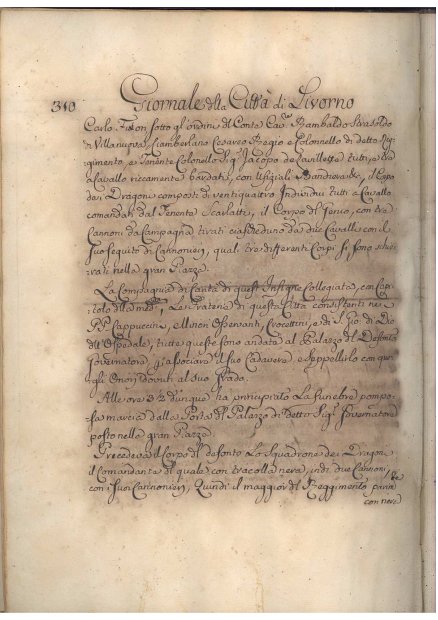 310 Giornale della Città di Livorno
Carlo sotto gl'ordini del Conte Cav.e Rambaldo Strasoldo
di Villanuova, Ciamberlano Cesareo Regio e Colonnello di detto Reg-
gimento, e Tenente Colonello Sig.r Jacopo de tutti, e due
a Cavallo riccamente bardati, con Ufiziali Bandierate, il Corpo
dei Dragoni composti di ventiquattro Individui tutti a Cavallo
comandati dal Tenente Scarlatti, il Corpo del Genio, con tre
Cannoni da Campagna tirati ciascheduno da due Cavalli con il
suo seguito di Cannonieri, quali tre differenti Corpi si sono schie-
rati nella gran Piazza.
La Compagnia di Carità di quest'Insigne Collegiata, con Capi-
tolo della med.ma, Le Fraterie di questa Città consistenti ne i
PP. Cappuccini, Minori Osservanti, Crocettini, e di S. Gio: di Dio
dell'Ospedale, tutte queste sono andate al Palazzo del Defonto
Governatore p. associare il suo Cadavere e seppellirlo con que-
gli Onori dovuti al suo Grado.
Alle ore 3 1/2 dunque ha principiato La funebre pompo-
sa marcia dalla Porta del Palazzo di detto Sig.r Governatore
posto nella gran Piazza
Precedeva il Corpo del defonto Lo Squadrone dei Dragoni
il Comandante del quale con tracolla nera, indi due Cannoni,
con i suoi Cannonieri, Quindi il maggior del Reggimento
con nere